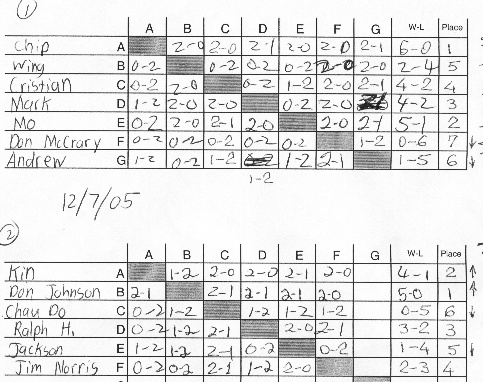 1
A B C D E F G W-L Place
Chip A 2-0 2-0 2-1 2-0 2-0 2-1 6-0 1
Wing B 0-2 0-2 0-2 0-2 2-0 2-0 2-4 5
Cristian C 0-2 2-0 0-2 1-2 2-0 2-1 4-2 4
Mark D 1-2 2-0 2-0 0-2 2-0 4-2 3
Mo E 0-2 2-0 2-1 2-0 2-0 2-1 5-1 2
Don McCrary F 0-2 0-2 0-2 0-2 0-2 1-2 0-6 7 ↓
Andrew G 1-2 0-2 1-2 1-2 2-1 1-5 6 ↓
1-2
12/7/05
2
A B C D E F G W-L Place
Kin A 1-2 2-0 2-0 2-1 2-0 4-1 2 ↑
Don Johnson B 2-1 2-1 2-1 2-1 2-0 5-0 1 ↑
Chau Do C 0-2 1-2 1-2 1-2 1-2 0-5 6 ↓
Ralph H. D 0-2 1-2 2-1 2-0 2-1 3-2 3
Jackson E 1-2 1-2 2-1 0-2 0-2 1-4 5 ↓
Jim Norris F 0-2 0-2 2-1 1-2 2-0 2-3 4